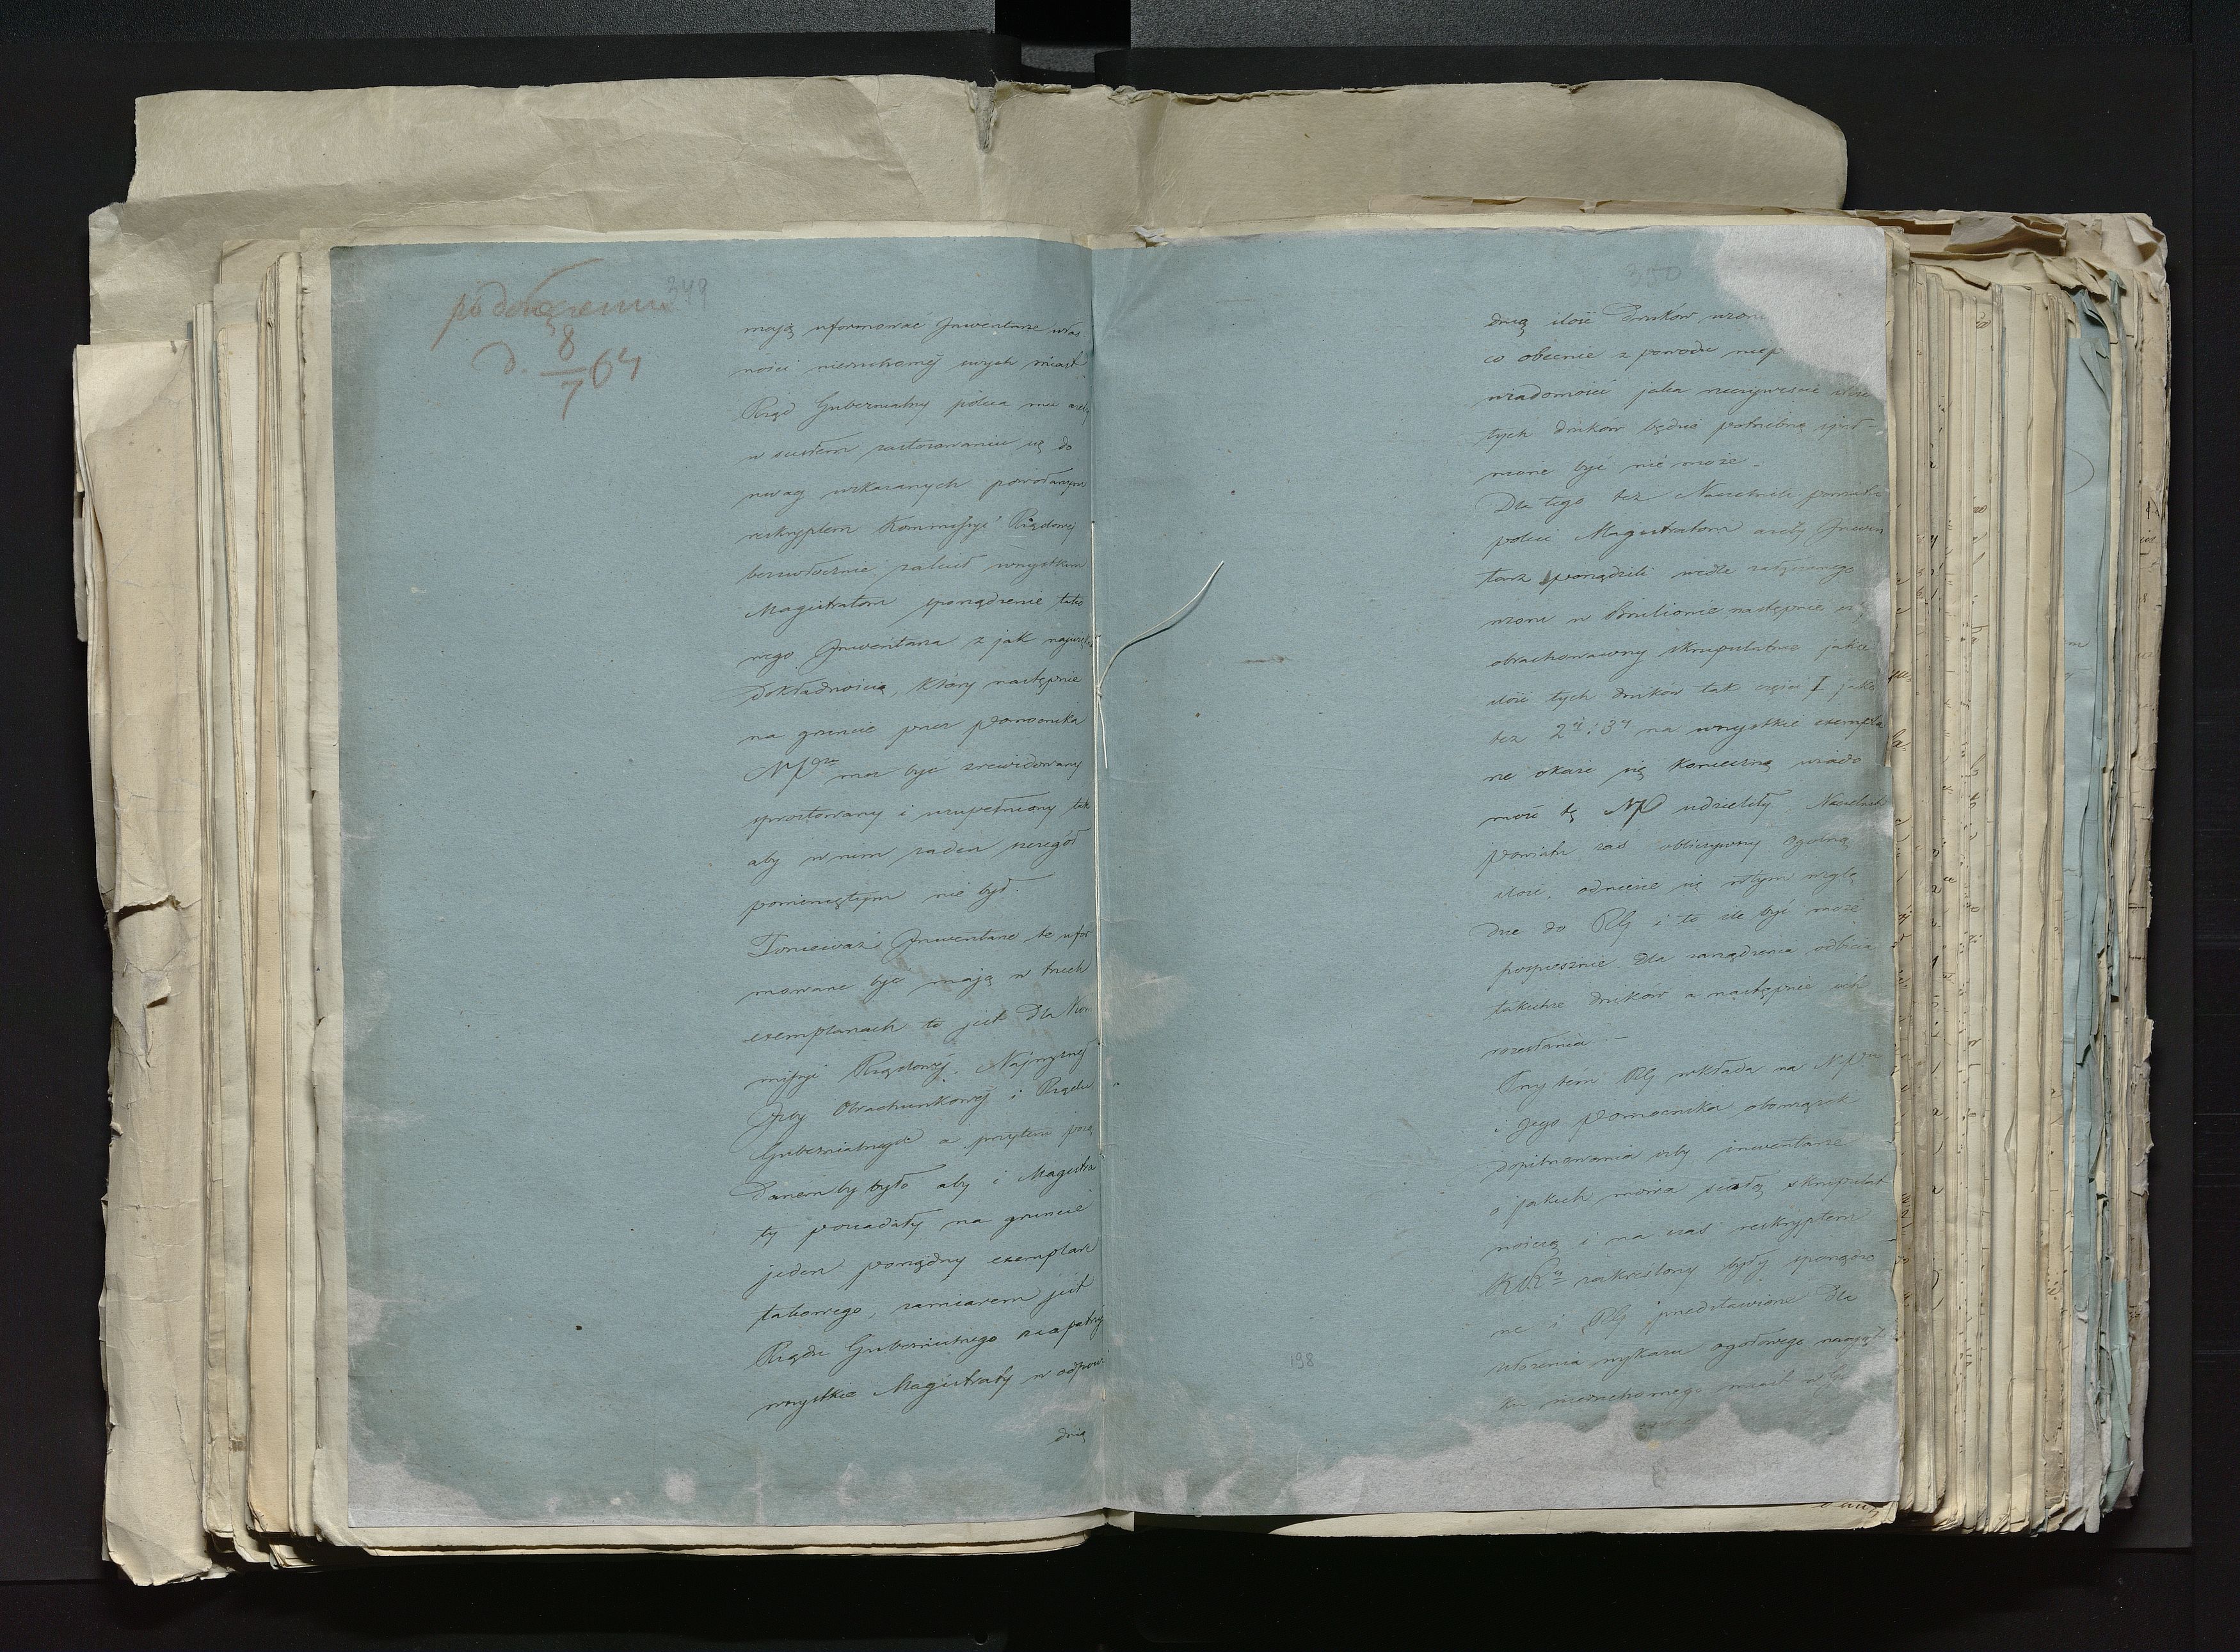 349
d. 8/7 64
mają uformować Inwentarze włas
ności nieruchomej swych miast
Rząd Gubernialny poleca mu ażeby
w ścisłem zastosowaniu się do
uwag wskazanych powołanym
reskryptem Kommissyi Rządowej
bezzwłocznie zalecił wszystkim
Magistratom sporządzenie tako
wego Inwentarza z jak najwięk
dokładnością, który następnie
na gruncie przez pomocnika
NPtu ma być zrewidowany
sprostowany i uzupełniony tak
aby w nim żaden szczegół
pominiętym nie był.
Ponieważ Inwentarze te ufor
mowane być mają w trzech
exemplarzach to jest dla Kom
missyi Rządowej, Najwyższej
Izby Obrachunkowej i Rządu
Gubernialnego a przytem pożą
danem by było aby i Magistra
ty posiadały na gruncie
jeden porządny exemplarz
takowego, zamiarem jest
Rządu Gubernialnego zaopatrzyć
wszystkie Magistraty w odpowie
dnią
350
dnią ilość Druków
co obecnie z powodu
wiadomości jaka rzeczywiście ilość
tych druków będzie potrzebną speł-
nione być nie może.
Dla tego też Naczelnik powiatu
poleci Magistratom ażeby Inwen
tarz sporządzili wedle załączonego
wzoru w Brulionie następnie
obrachowawszy skrupulatnie jaka
ilość tych druków tak części I jako
też 2ej i 3ej na wszystkie exempla
rze okaże się konieczną wiado
mość tę NP udzieliły Naczelnik
powiatu zaś obliczywszy ogólną
ilość, odniesie się w tym wzglę
dzie do RG i to ile być może
pospiesznie dla zarządzenia odbicia
takichże druków a następnie ich
rozesłania. —
Przy tém RG wkłada na NPtu
i Jego Pomocnika obowiązek
dopilnowania żeby inwentarze
o jakich mowa z całą skrupulat
nością i na czas reskryptem
zakreślony były sporządzo
ne i RG przedstawione dla
ułożenia wykazu ogółowego mająt
ku nieruchomego miast
198